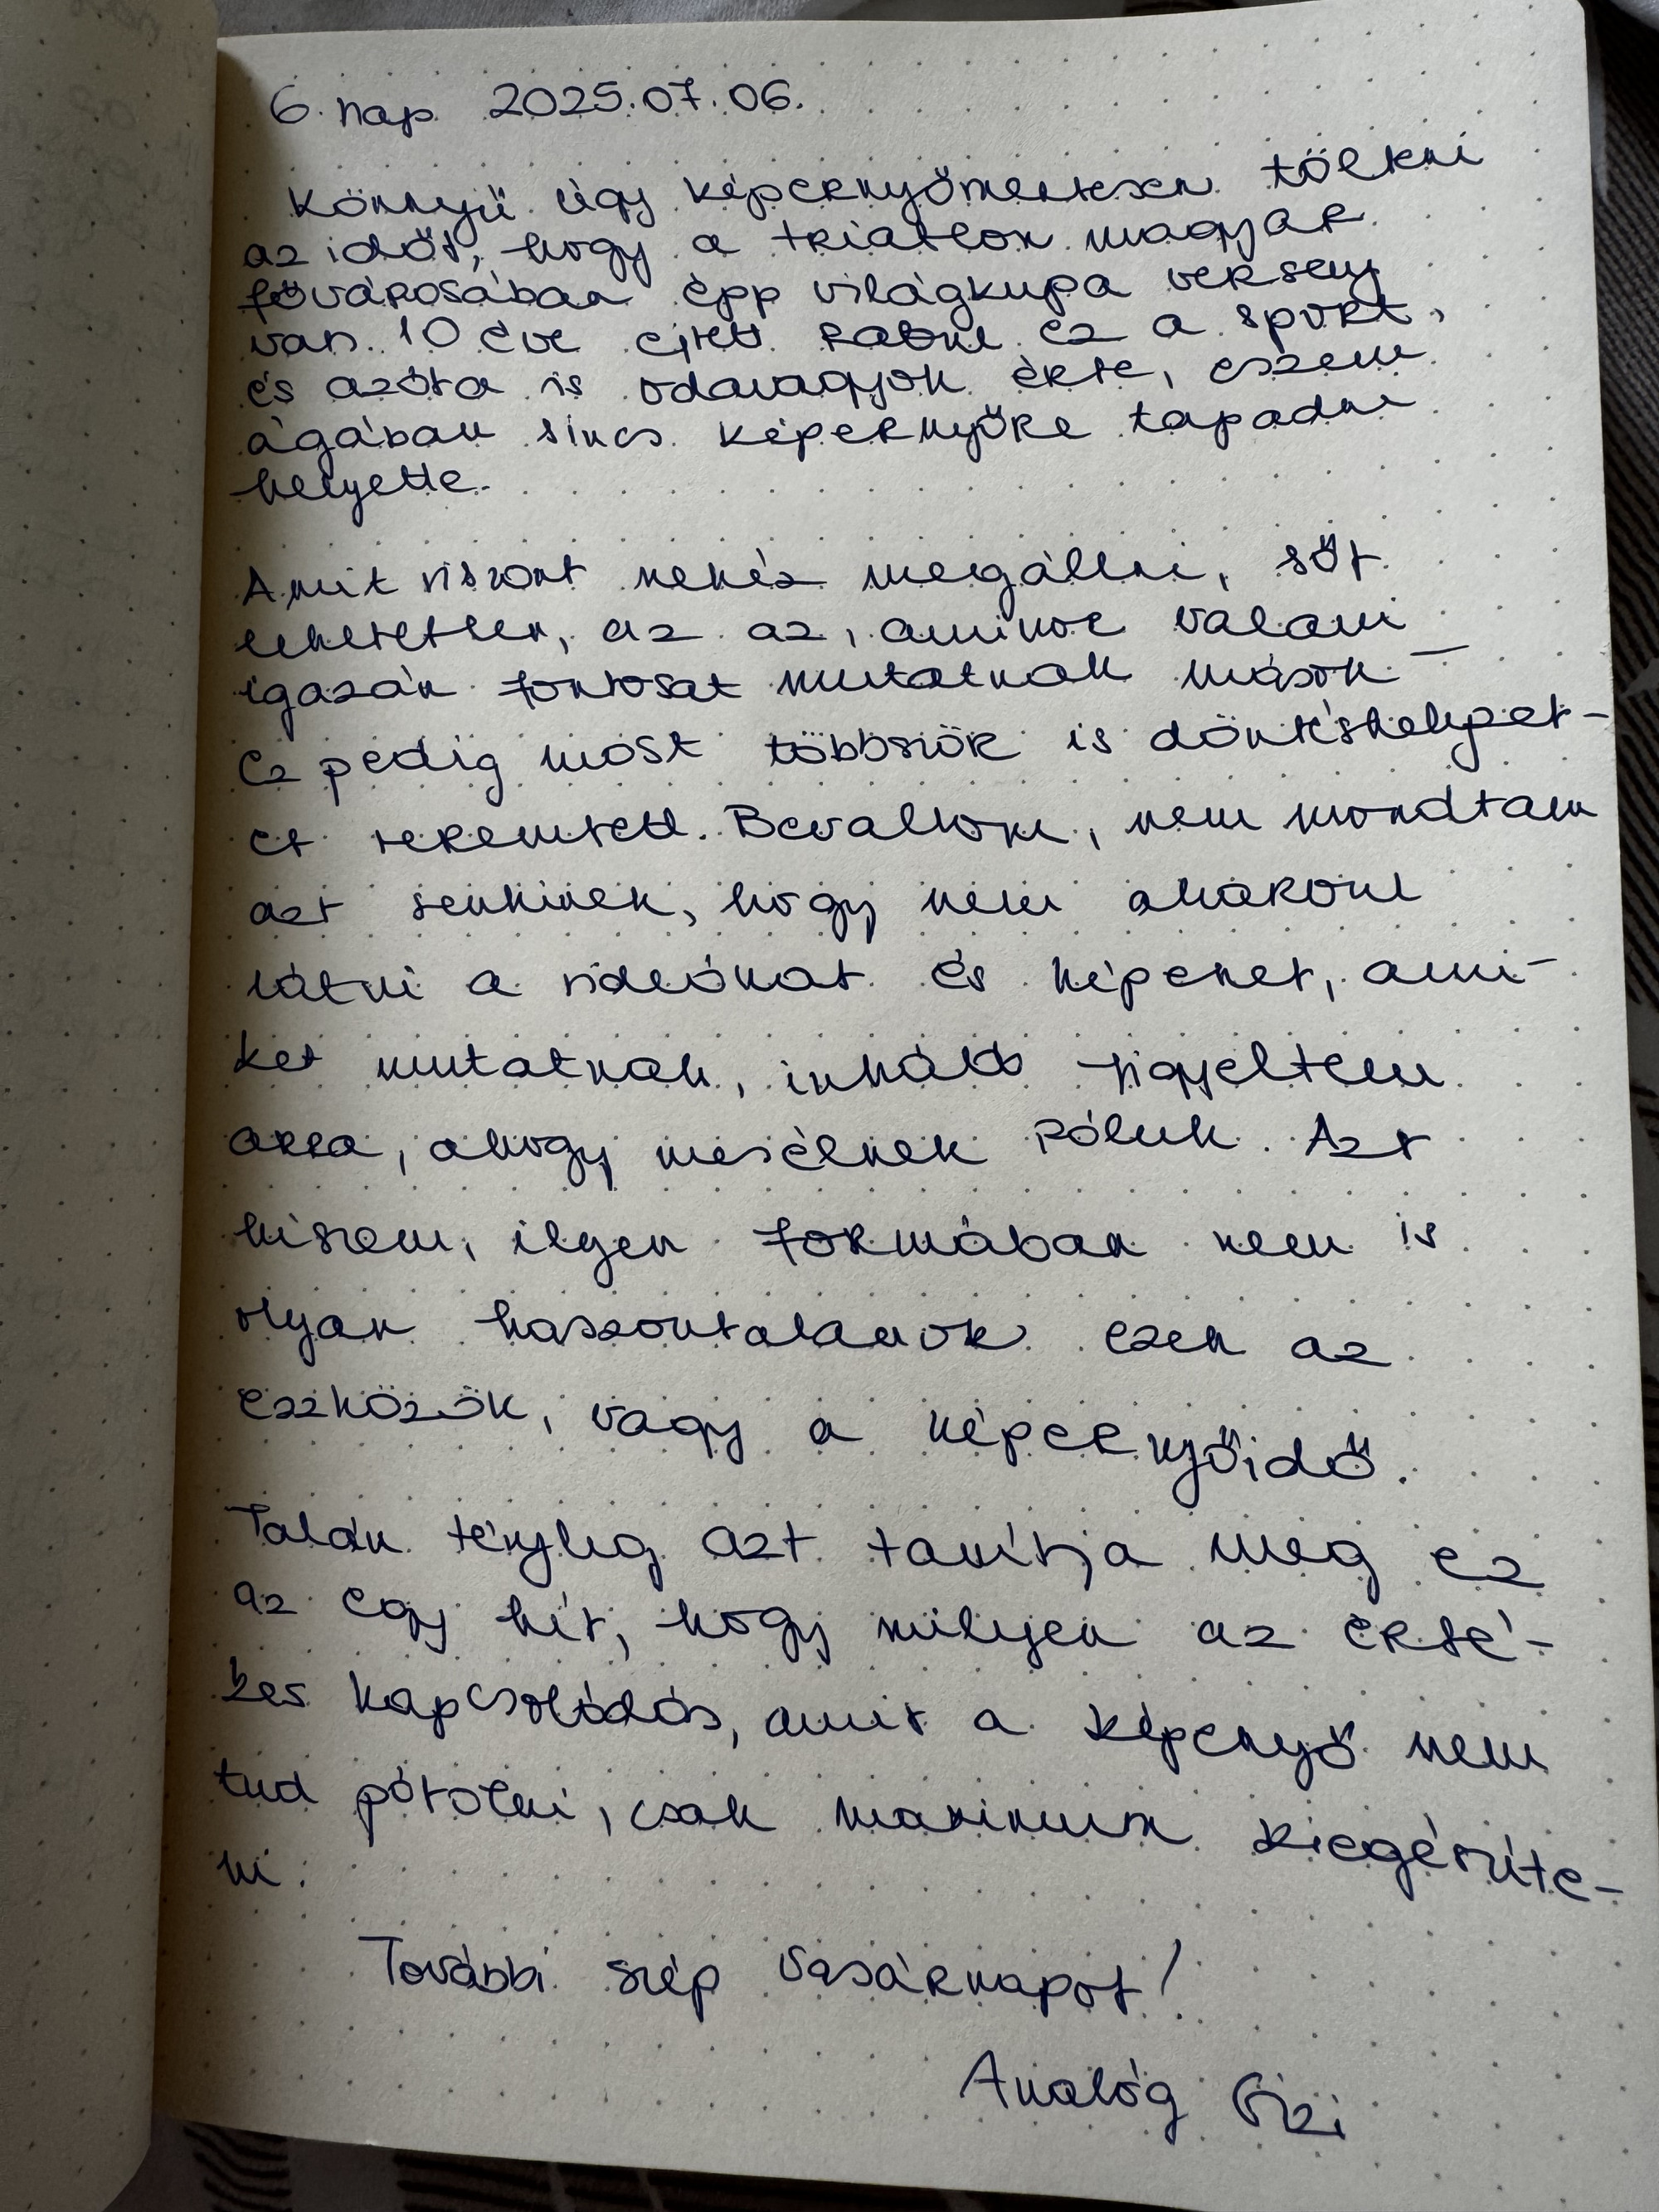 6. nap 2025.07.06.
Könnyű úgy képernyőmentesen tölteni
az időt, hogy a triatlon magyar
fővárosában épp világkupa verseny
van. 10 éve ejtett rabul ez a sport,
és azóta is odavagyok érte, eszem
ágában sincs képernyőre tapadni
helyette.
Amit viszont nehéz megállni, sőt
lehetetlen, az az, amikor valami
igazán fontosat mutatnak mások –
Ez pedig most többször is döntéshelyzet-
et teremtett. Bevallom, nem mondtam
azt senkinek, hogy nem akarom
látni a videókat és képeket, ami-
ket mutatnak, inkább figyeltem
arra, ahogy mesélnek róluk. Azt
hiszem, ilyen formában nem is
olyan haszontalanok ezek az
eszközök, vagy a képernyőidő.
Talán tényleg azt tanítja meg ez
az egy hét, hogy milyen az érté-
kes kapcsolódás, amit a képenyő nem
tud pótolni, csak maximum kiegészíte-
ni.
További szép vasárnapot!
Analóg